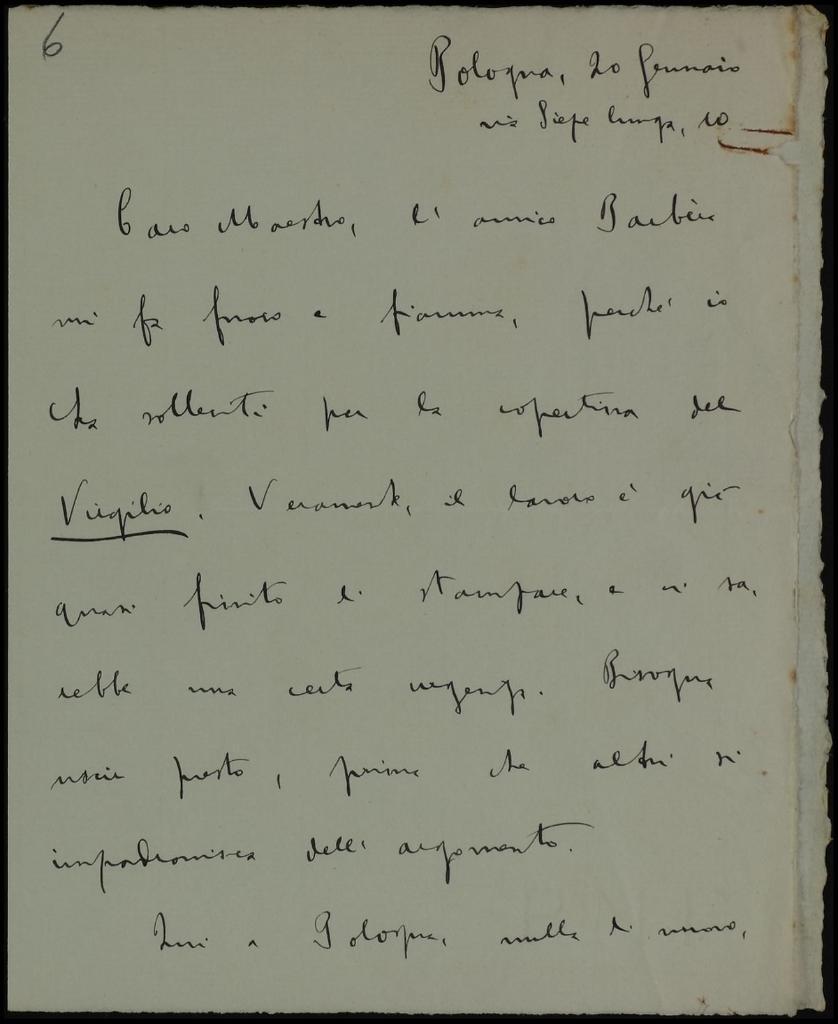 6
Bologna, 20 Gennaio
via Siepe lunga, 10
Caro Maestro, l'amico Barbèra
mi fa fuoco e fiamma, perché io
La solleciti per la copertina del
Virgilio. Veramente, il lavoro è già
quasi finito di stampare, e vi sa,
rebbe una certa urgenza. Bisogna
uscir presto, prima che altri si
impadronisca dell'argomento.
Qui a Bologna, nulla di nuovo,